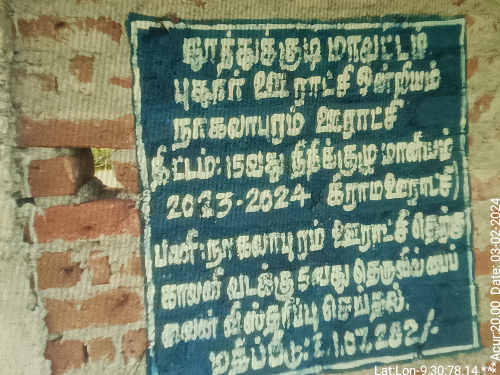 தூத்துக்குடி மாவட்டம்
புதூர் ஊராட்சி ஒன்றியம்
நாகலாபுரம் ஊராட்சி
திட்டம்: 15வது நிதிக்குழு மானியம்
2023-2024 (கிராம ஊராட்சி)
பணி: நாகலாபுரம் ஊராட்சி தெற்கு
காலனி வடக்கு 5வது தெருவில் பைப்
லைன் விஸ்தரிப்பு செய்தல்.
மதிப்பீடு: 1.07.282/-
Lat:Lon-9.30:78.14
Acur:20.00 Date: 03-02-2024